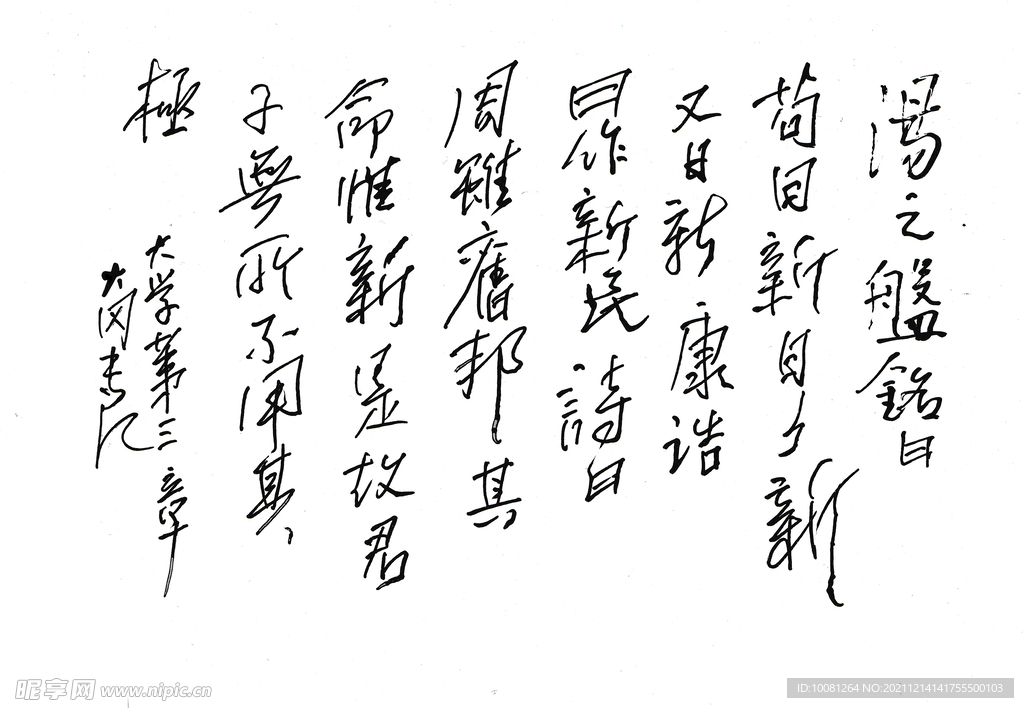 湯之盤銘曰
苟日新日々新
又日新康诰
曰作新民詩曰
周雖舊邦其
命惟新是故君
子無所不用其
極
大学第三章
大冈
昵享网 www.nipic.cn
ID:10081264 NO:20211214141755500103